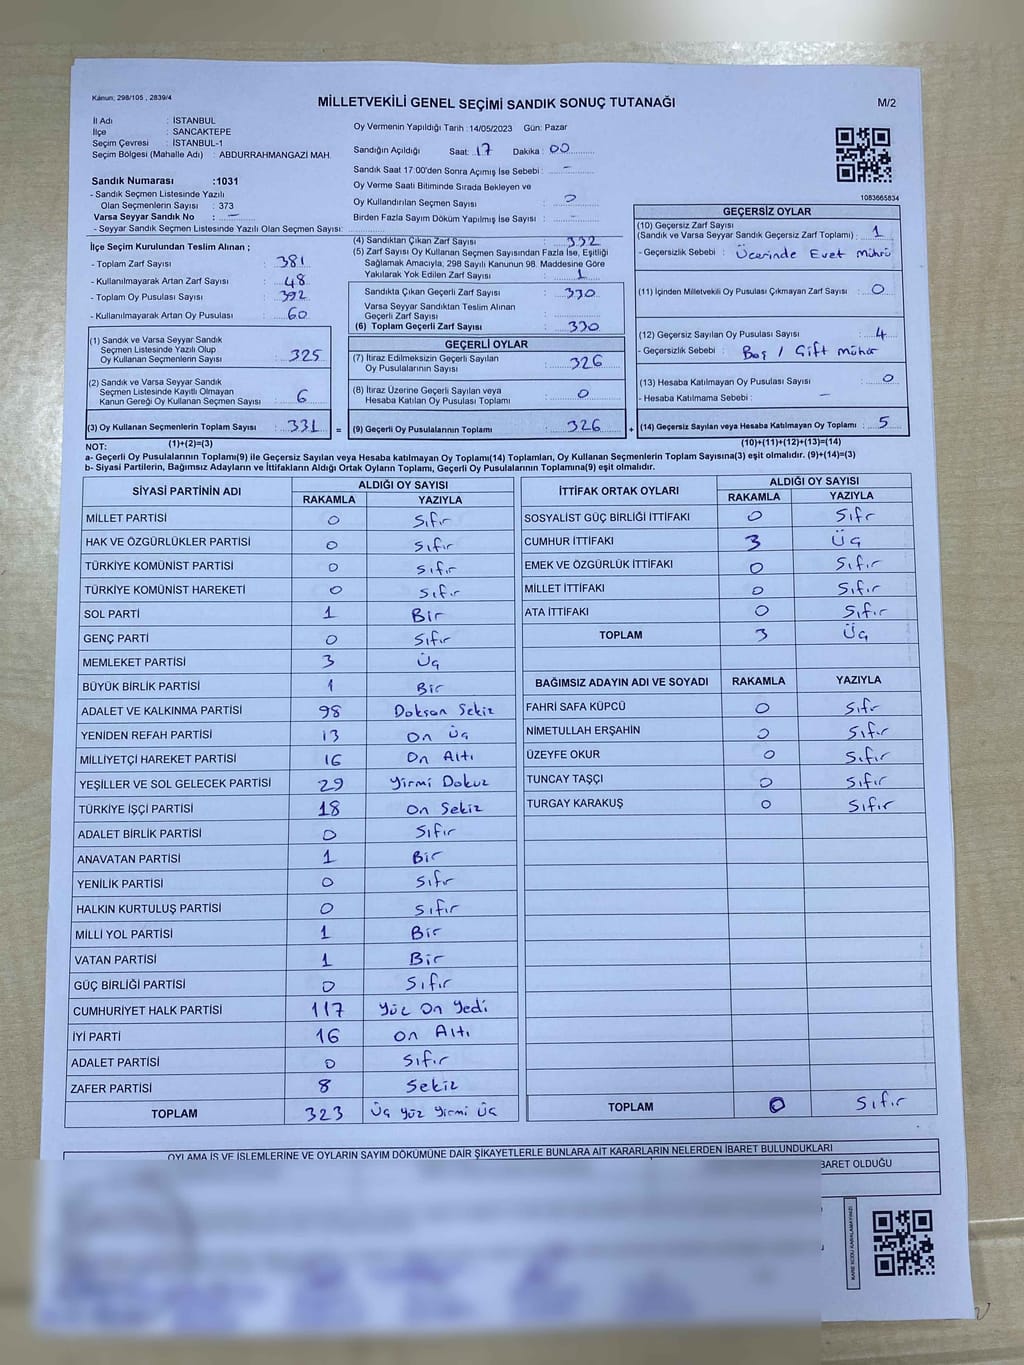 Kanun; 298/105 , 2839/4
MİLLETVEKİLİ GENEL SEÇİMİ SANDIK SONUÇ TUTANAĞI
M/2
İl Adı : İSTANBUL
İlçe : SANCAKTEPE
Seçim Çevresi : İSTANBUL-1
Seçim Bölgesi (Mahalle Adı) : ABDURRAHMANGAZİ MAH.
Sandık Numarası :1031
- Sandık Seçmen Listesinde Yazılı
Olan Seçmenlerin Sayısı : 373
Varsa Seyyar Sandık No : -
- Seyyar Sandık Seçmen Listesinde Yazılı Olan Seçmen Sayısı:
Oy Vermenin Yapıldığı Tarih :14/05/2023 Gün: Pazar
Sandığın Açıldığı Saat: 17 Dakika : 00
Sandık Saat 17:00'den Sonra Açımış İse Sebebi : -
Oy Verme Saati Bitiminde Sırada Bekleyen ve
Oy Kullandırılan Seçmen Sayısı : 0
Birden Fazla Sayım Döküm Yapılmış İse Sayısı : -
1083665834
İlçe Seçim Kurulundan Teslim Alınan ;
- Toplam Zarf Sayısı : 381
- Kullanılmayarak Artan Zarf Sayısı : 48
- Toplam Oy Pusulası Sayısı : 392
- Kullanılmayarak Artan Oy Pusulası : 60
(1) Sandık ve Varsa Seyyar Sandık
Seçmen Listesinde Yazılı Olup
Oy Kullanan Seçmenlerin Sayısı : 325
(2) Sandık ve Varsa Seyyar Sandık
Seçmen Listesinde Kayıtlı Olmayan
Kanun Gereği Oy Kullanan Seçmen Sayısı : 6
(3) Oy Kullanan Seçmenlerin Toplam Sayısı : 331 =
(1)+(2)=(3)
(4) Sandıktan Çıkan Zarf Sayısı : 332
(5) Zarf Sayısı Oy Kullanan Seçmen Sayısından Fazla İse, Eşitliği
Sağlamak Amacıyla, 298 Sayılı Kanunun 98. Maddesine Göre
Yakılarak Yok Edilen Zarf Sayısı : 1
Sandıkta Çıkan Geçerli Zarf Sayısı : 330
Varsa Seyyar Sandıktan Teslim Alınan
Geçerli Zarf Sayısı :
(6) Toplam Geçerli Zarf Sayısı : 330
GEÇERLİ OYLAR
(7) İtiraz Edilmeksizin Geçerli Sayılan
Oy Pusulalarının Sayısı : 326
(8) İtiraz Üzerine Geçerli Sayılan veya
Hesaba Katılan Oy Pusulası Toplamı : 0
(9) Geçerli Oy Pusulalarının Toplamı : 326 +
GEÇERSİZ OYLAR
(10) Geçersiz Zarf Sayısı
(Sandık ve Varsa Seyyar Sandık Geçersiz Zarf Toplamı) : 1
- Geçersizlik Sebebi : Üzerinde Evet Mührü
(11) İçinden Milletvekili Oy Pusulası Çıkmayan Zarf Sayısı : 0
(12) Geçersiz Sayılan Oy Pusulası Sayısı : 4
- Geçersizlik Sebebi : Boş / Çift mühür
(13) Hesaba Katılmayan Oy Pusulası Sayısı : 0
- Hesaba Katılmama Sebebi : -
(14) Geçersiz Sayılan veya Hesaba Katılmayan Oy Toplamı : 5
(10)+(11)+(12)+(13)=(14)
NOT:
a- Geçerli Oy Pusulalarının Toplamı(9) ile Geçersiz Sayılan veya Hesaba Katılmayan Oy Toplamı(14) Toplamları, Oy Kullanan Seçmenlerin Toplam Sayısına(3) eşit olmalıdır. (9)+(14)=(3)
b- Siyasi Partilerin, Bağımsız Adayların ve İttifakların Aldığı Ortak Oyların Toplamı, Geçerli Oy Pusulalarının Toplamına(9) eşit olmalıdır.
SİYASİ PARTİNİN ADI ALDIĞI OY SAYISI
RAKAMLA YAZIYLA
MİLLET PARTİSİ 0 Sıfır
HAK VE ÖZGÜRLÜKLER PARTİSİ 0 Sıfır
TÜRKİYE KOMÜNİST PARTİSİ 0 Sıfır
TÜRKİYE KOMÜNİST HAREKETİ 0 Sıfır
SOL PARTİ 1 Bir
GENÇ PARTİ 0 Sıfır
MEMLEKET PARTİSİ 3 Üç
BÜYÜK BİRLİK PARTİSİ 1 Bir
ADALET VE KALKINMA PARTİSİ 98 Doksan Sekiz
YENİDEN REFAH PARTİSİ 13 On Üç
MİLLİYETÇİ HAREKET PARTİSİ 16 On Altı
YEŞİLLER VE SOL GELECEK PARTİSİ 29 Yirmi Dokuz
TÜRKİYE İŞÇİ PARTİSİ 18 On Sekiz
ADALET BİRLİK PARTİSİ 0 Sıfır
ANAVATAN PARTİSİ 1 Bir
YENİLİK PARTİSİ 0 Sıfır
HALKIN KURTULUŞ PARTİSİ 0 Sıfır
MİLLİ YOL PARTİSİ 1 Bir
VATAN PARTİSİ 1 Bir
GÜÇ BİRLİĞİ PARTİSİ 0 Sıfır
CUMHURİYET HALK PARTİSİ 117 Yüz On Yedi
İYİ PARTİ 16 On Altı
ADALET PARTİSİ 0 Sıfır
ZAFER PARTİSİ 8 Sekiz
TOPLAM 323 Üç Yüz Yirmi Üç
İTTİFAK ORTAK OYLARI ALDIĞI OY SAYISI
RAKAMLA YAZIYLA
SOSYALİST GÜÇ BİRLİĞİ İTTİFAKI 0 Sıfr
CUMHUR İTTİFAKI 3 Üç
EMEK VE ÖZGÜRLÜK İTTİFAKI 0 Sıfır
MİLLET İTTİFAKI 0 Sıfır
ATA İTTİFAKI 0 Sıfır
TOPLAM 3 Üç
BAĞIMSIZ ADAYIN ADI VE SOYADI RAKAMLA YAZIYLA
FAHRİ SAFA KÜPCÜ 0 Sıfır
NİMETULLAH ERŞAHİN 0 Sıfır
ÜZEYFE OKUR 0 Sıfır
TUNCAY TAŞÇI 0 Sıfır
TURGAY KARAKUŞ 0 Sıfır
TOPLAM 0 Sıfır
OYLAMA İŞ VE İŞLEMLERİNE VE OYLARIN SAYIM DÖKÜMÜNE DAİR ŞİKAYETLERLE BUNLARA AİT KARARLARIN NELERDEN İBARET BULUNDUKLARI
BARET OLDUĞU
KARE KODU KARALAMAYINIZ!